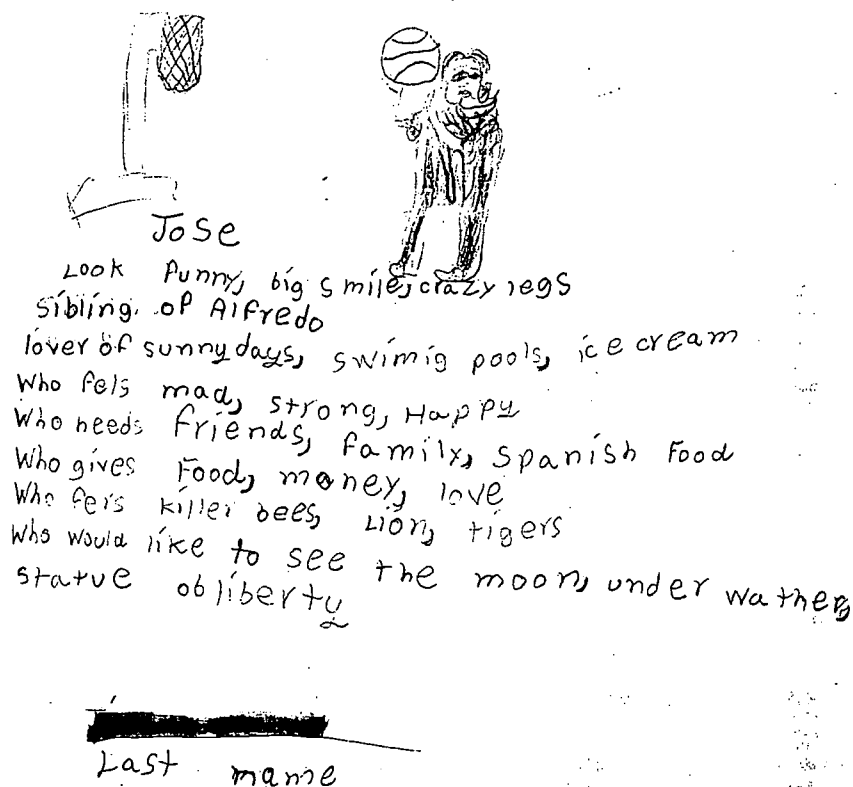 Jose
Look Punny, big smile, crazy legs
sibling of Alfredo
lover of sunny days, swimig pools, ice cream
Who fels mad, strong, Happy
Who needs friends, family, Spanish Food
Who gives Food, money, love
Who fers killer bees, Lion, tigers
Who would like to see the moon, under wather,
statue ob liberty
Last mame